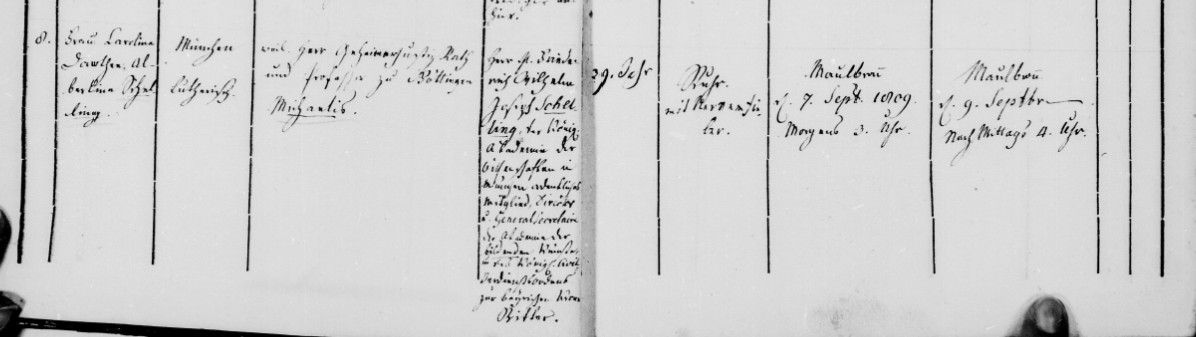 hier.
8.
Frau Carolina
Dorothea Al-
bertina Schel-
ling.
München
lutherisch.
weil. Herr Geheimer Justiz Rath
und Professor zu Göttingen
Michaelis.
Herr Friede-
rich Wilhelm
Joseph Schel-
ling, der Königl.
Akademie der
Wissenschaften in
München ordentliches
Mitglied, Direktor
u. General Secretaire
der Akademie der
bildenden Künste,
u. des Königl. Civil
Verdienstordens
zur bayrischen Krone
Ritter.
Jahr
Ruhr.
mit Nervenfie-
ber.
Maulbronn
d. 7. Sept. 1809.
Morgens 3. Uhr.
Maulbronn
d. 9. Septbr
Nach Mittags 4. Uhr.